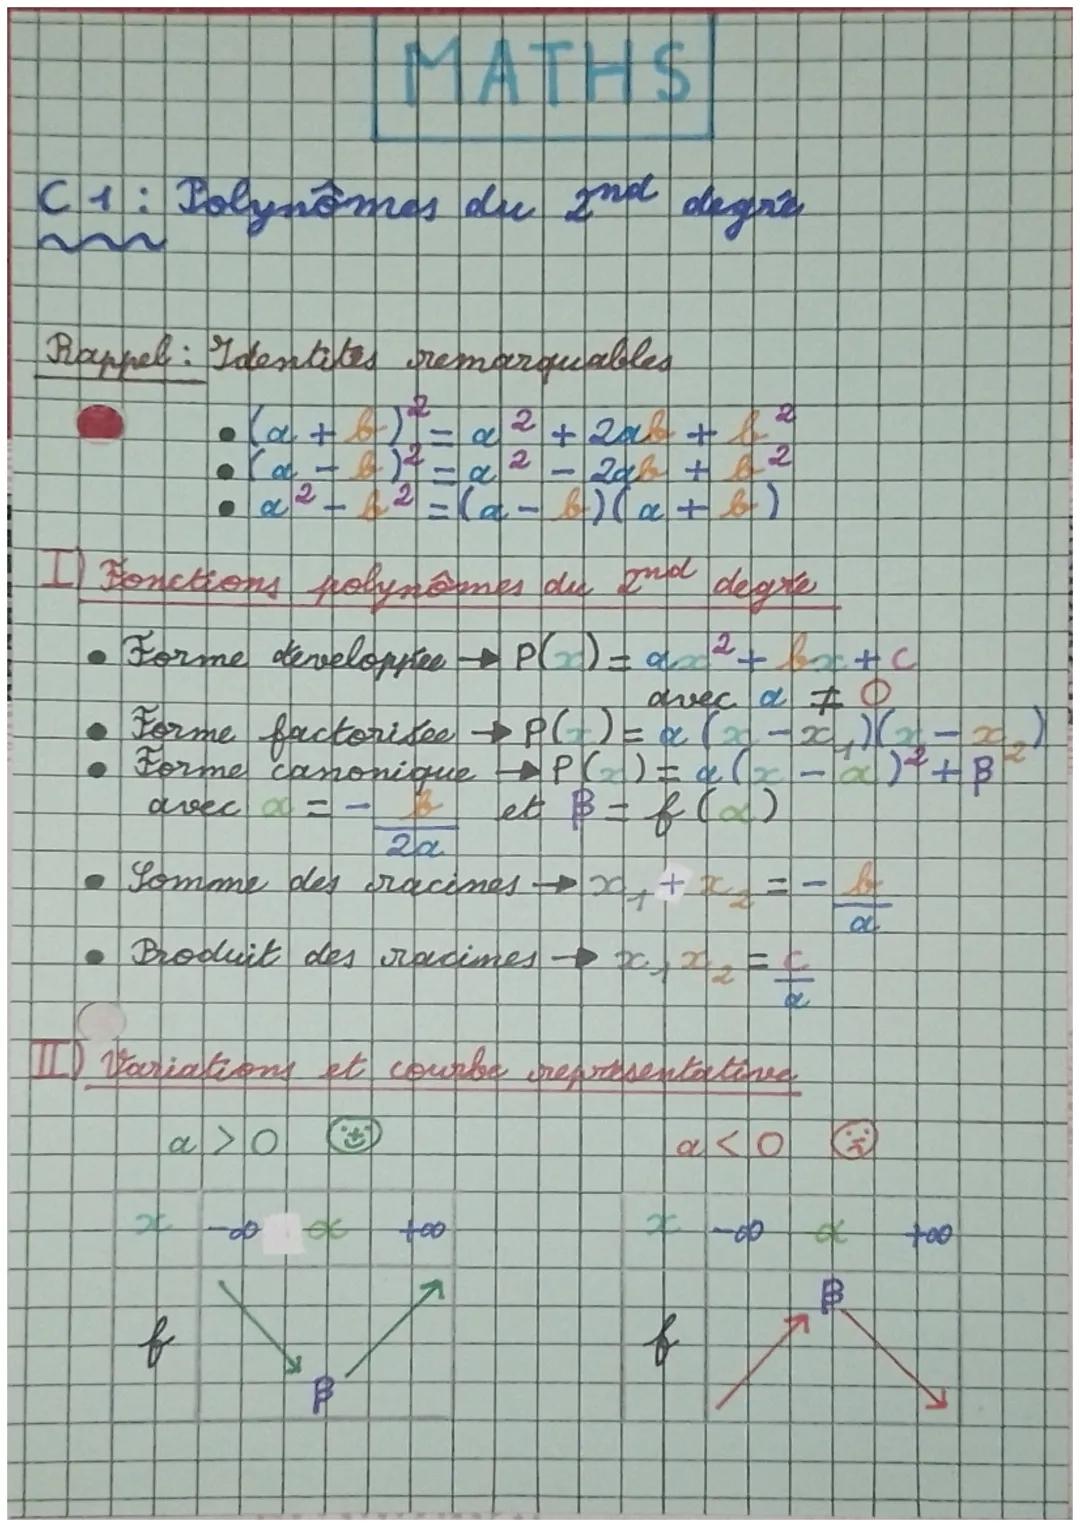 MATHS
C1 : Polynômes du 2nd degré
Rappel : Identités remarquables
• (a + b)² = a² + 2ab + b²
• (a - b)² = a² - 2ab + b²
• a² - b² = (a - b)(a + b)
I) Fonctions polynômes du 2nd degré
• Forme developpée → P(x) = ax² + bx + c
avec a ≠ 0
• Forme factorisée → P(x) = a(x - x₁)(x - x₂)
• Forme canonique → P(x) = a(x - α)² + β
avec α = - b/2a et β = f(α)
• Somme des racines → x₁ + x₂ = - b/a
• Produit des racines → x₁ x₂ = c/a
II) Variations et courbe représentative
a > 0 a < 0
x -∞ α +∞ x -∞ α +∞
β
f f
β